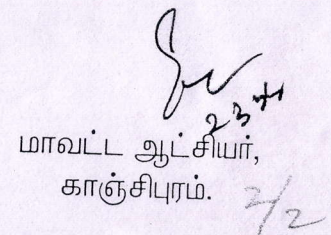 மாவட்ட ஆட்சியர்,
காஞ்சிபுரம்.
2/2